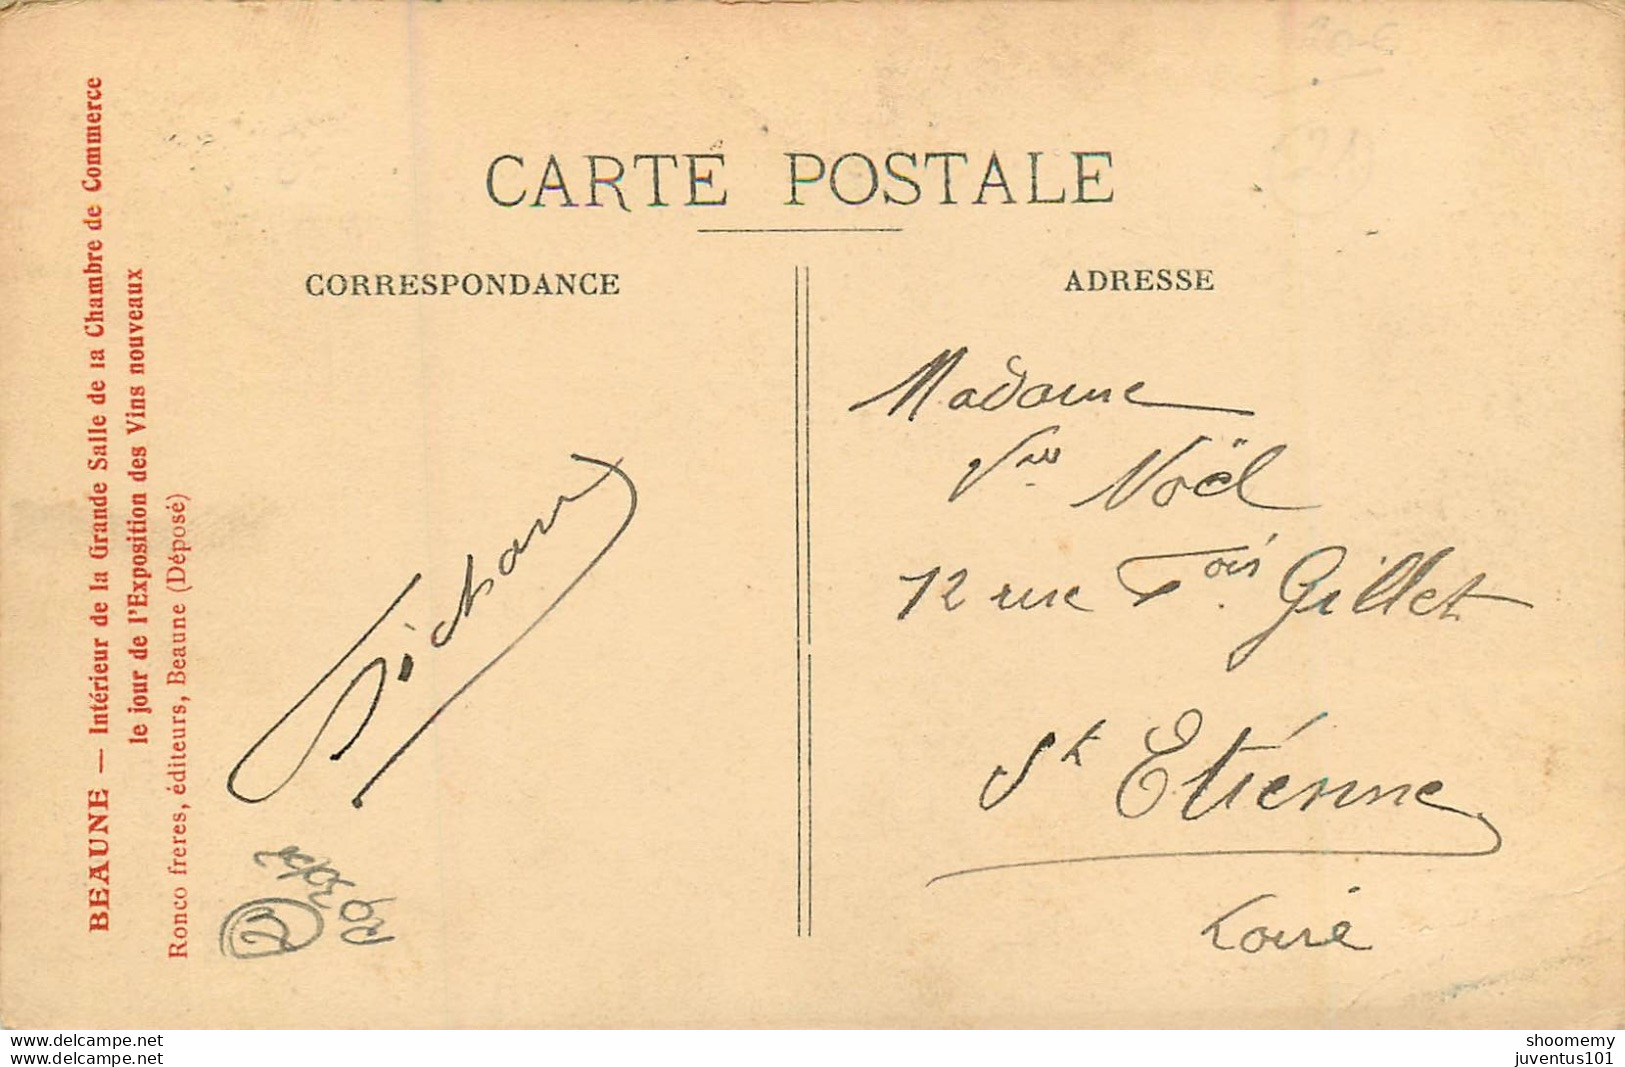 CARTE POSTALE
CORRESPONDANCE
ADRESSE
BEAUNE — Intérieur de la Grande Salle de la Chambre de Commerce
le jour de l'Exposition des Vins nouveaux
Ronco freres, éditeurs, Beaune (Déposé)
Madame
Vve Noël
12 rue Fois Gillet
St Etienne
Loire
myimages.delcampe.net
www.delcampe.net
shoomemy
juventus101